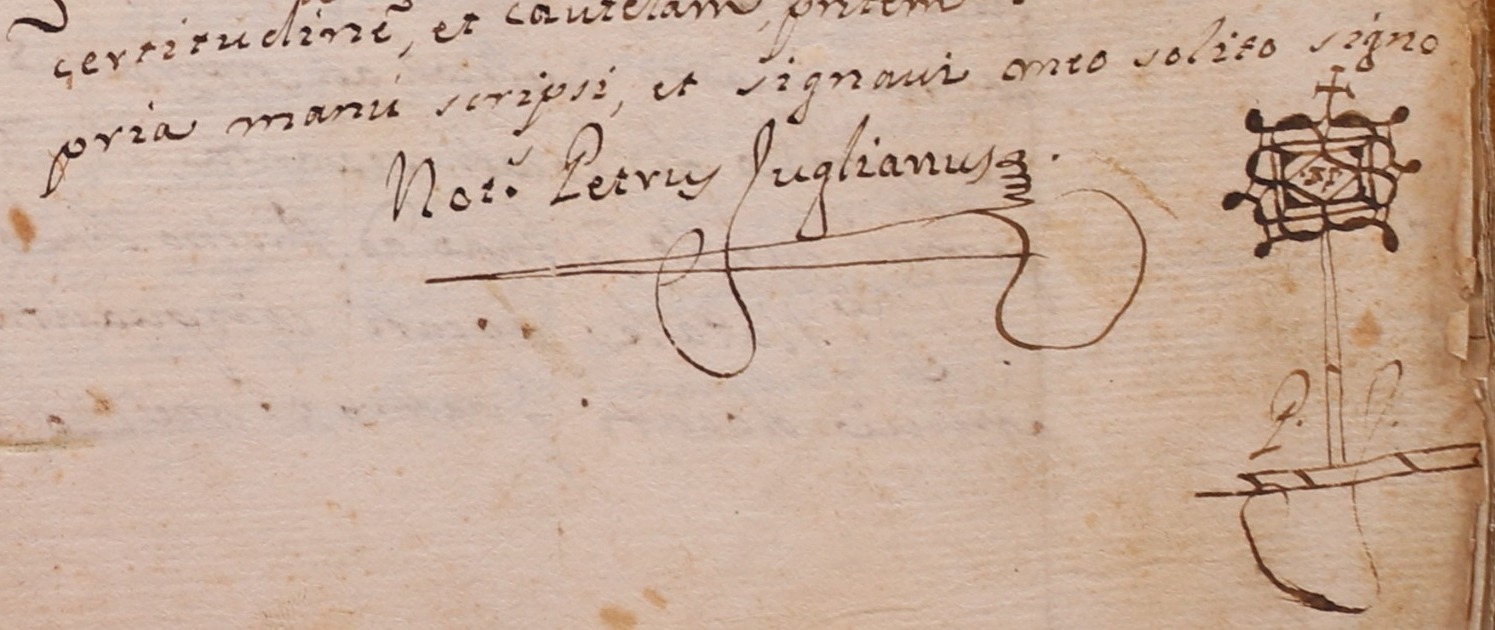 certitudinē, et cautelam, pñtem
pria manu scripsi, et signavi meo solito signo
Not.s Petrus Juglianus
P. J.